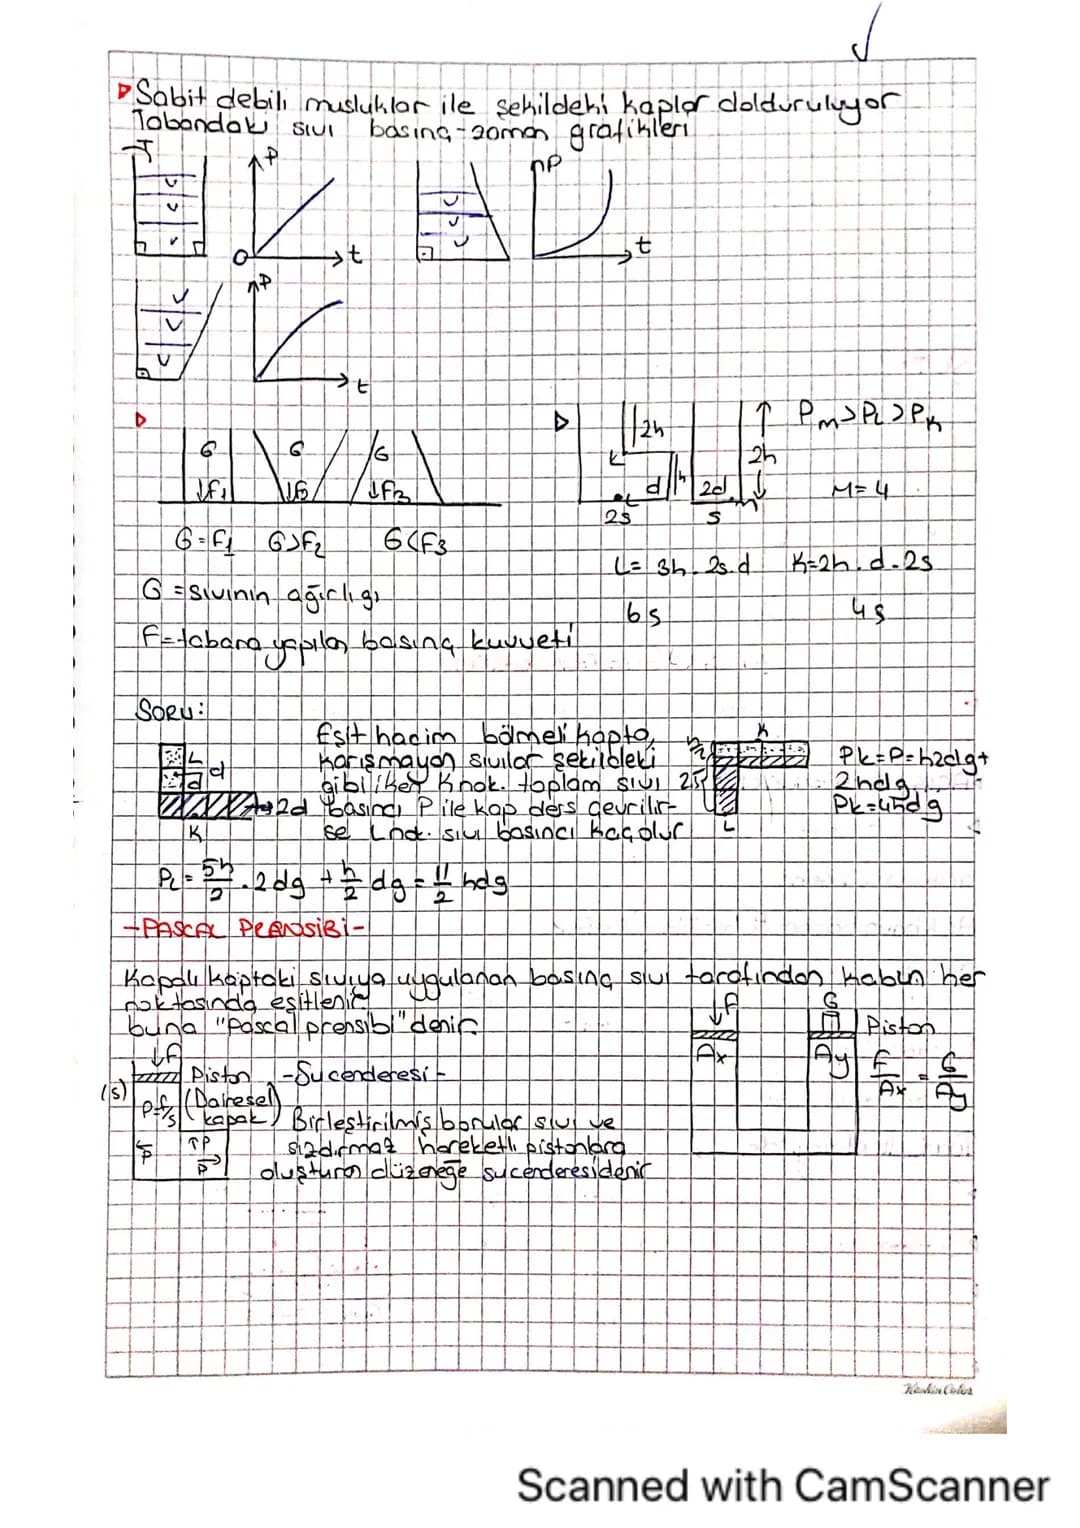 Sabit debili musluklar ile şekildeki kaplar dolduruluyor
Tabandaki sıvı basınç-zaman grafikleri
P
O
t
P
t
P
t
G
G
G
↓F1
↓F2
↓F3
G=F1 G>F2 G<F3
G = sıvının ağırlığı
F= tabana yapılan basınç kuvveti
2h
K
d
h
2d
2h
2s
s
Pm>PL>PK
M=4
L= 3h.2s.d K=2h.d.2s
6s 4s
SORU:
Eşit hacim bölmeli kapta,
karışmayan sıvılar şekildeki
gibi iken K nok. toplam sıvı
basıncı P ile kap ders çevrilir-
se L nok. sıvı basıncı kaç olur
L
d
d
2d
K
K
L
PK=P=h2dg+
2hdg
PK=4hdg
PL = 5h/2 .2dg + h/2 dg = 11/2 hdg
-PASCAL PRENSİBİ-
Kapalı kaptaki sıvıya uygulanan basınç sıvı tarafından kabın her
noktasında eşitlenir
buna "Pascal prensibi" denir
↓F
Piston
(Dairesel
kapak)
(s)
P=F/s
↑P
P
P
-Sucenderesi-
Birleştirilmiş borular sıvı ve
sızdırmaz hareketli pistonlara
oluşturan düzeneğe sucenderesi denir
↓F
G
Piston
Ax
Ay
F/Ax = G/Ay
Keskin Color
Scanned with CamScanner